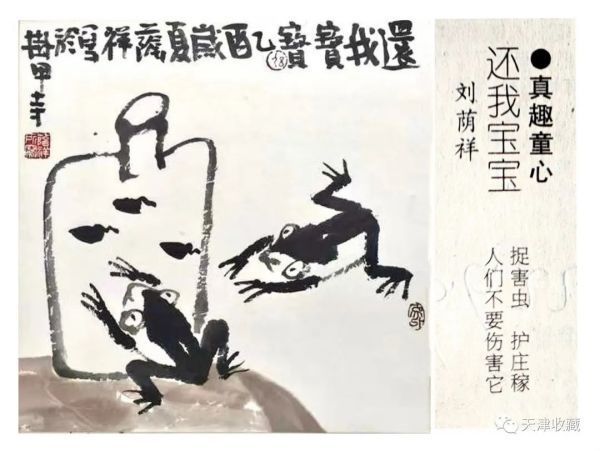 還我寶寶乙酉歲夏蔭祥寫於
掛甲寺
●真趣童心
还我宝宝
刘荫祥
捉害虫 护庄稼
人们不要伤害它
天津收藏